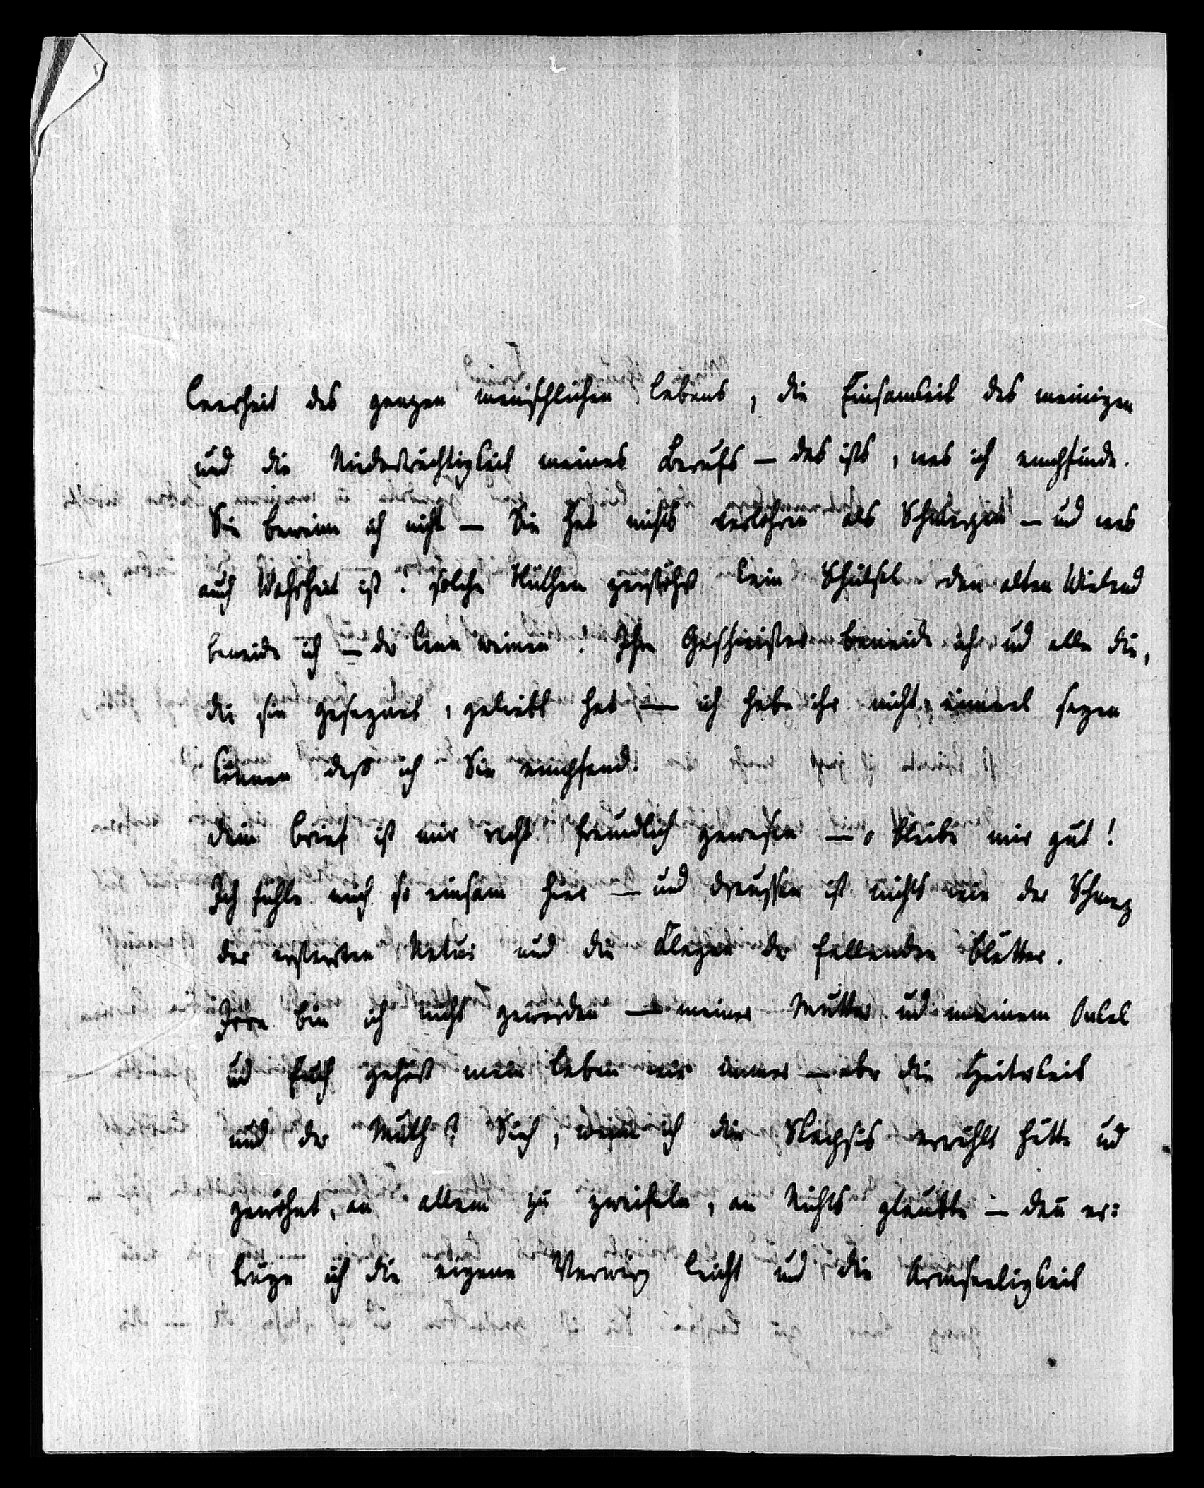 Leerheit des ganzen menschlichen Lebens, die Einsamkeit des meinigen
und die Niederträchtigkeit meines Berufs — das ists, was ich empfinde.
Sie bewein ich nicht — Sie hat nichts verlohren als — und was
auch Wahrheit ist! solche Blüthen zerstöhrt kein Schicksal den alten Wieland
beneide ich — der kann weinen! Ihre Geschwister beneide ich und alle die,
die sie gesegnet, geliebt hat — ich habe ihr nicht einmal sagen
können daß ich Sie empfand.
Dein Brief ist mir recht freundlich gewesen — bleibe mir gut!
Ich fühle mich so einsam hier — und draussen ist nichts wie der Schmerz
der erstarrten Natur und die Klagen der fallenden Blätter.
Irre bin ich nicht geworden — meiner Mutter und meinem Onkel
und Euch gehört mein Leben wie immer — aber die Heiterkeit
und der Muth? Sieh, wenn ich die erwählt hätte und
gewöhnt, an allem zu zweifeln, an Nichts glaubte — dann er:
trüge ich die eigene leicht und die Armseeligkeit